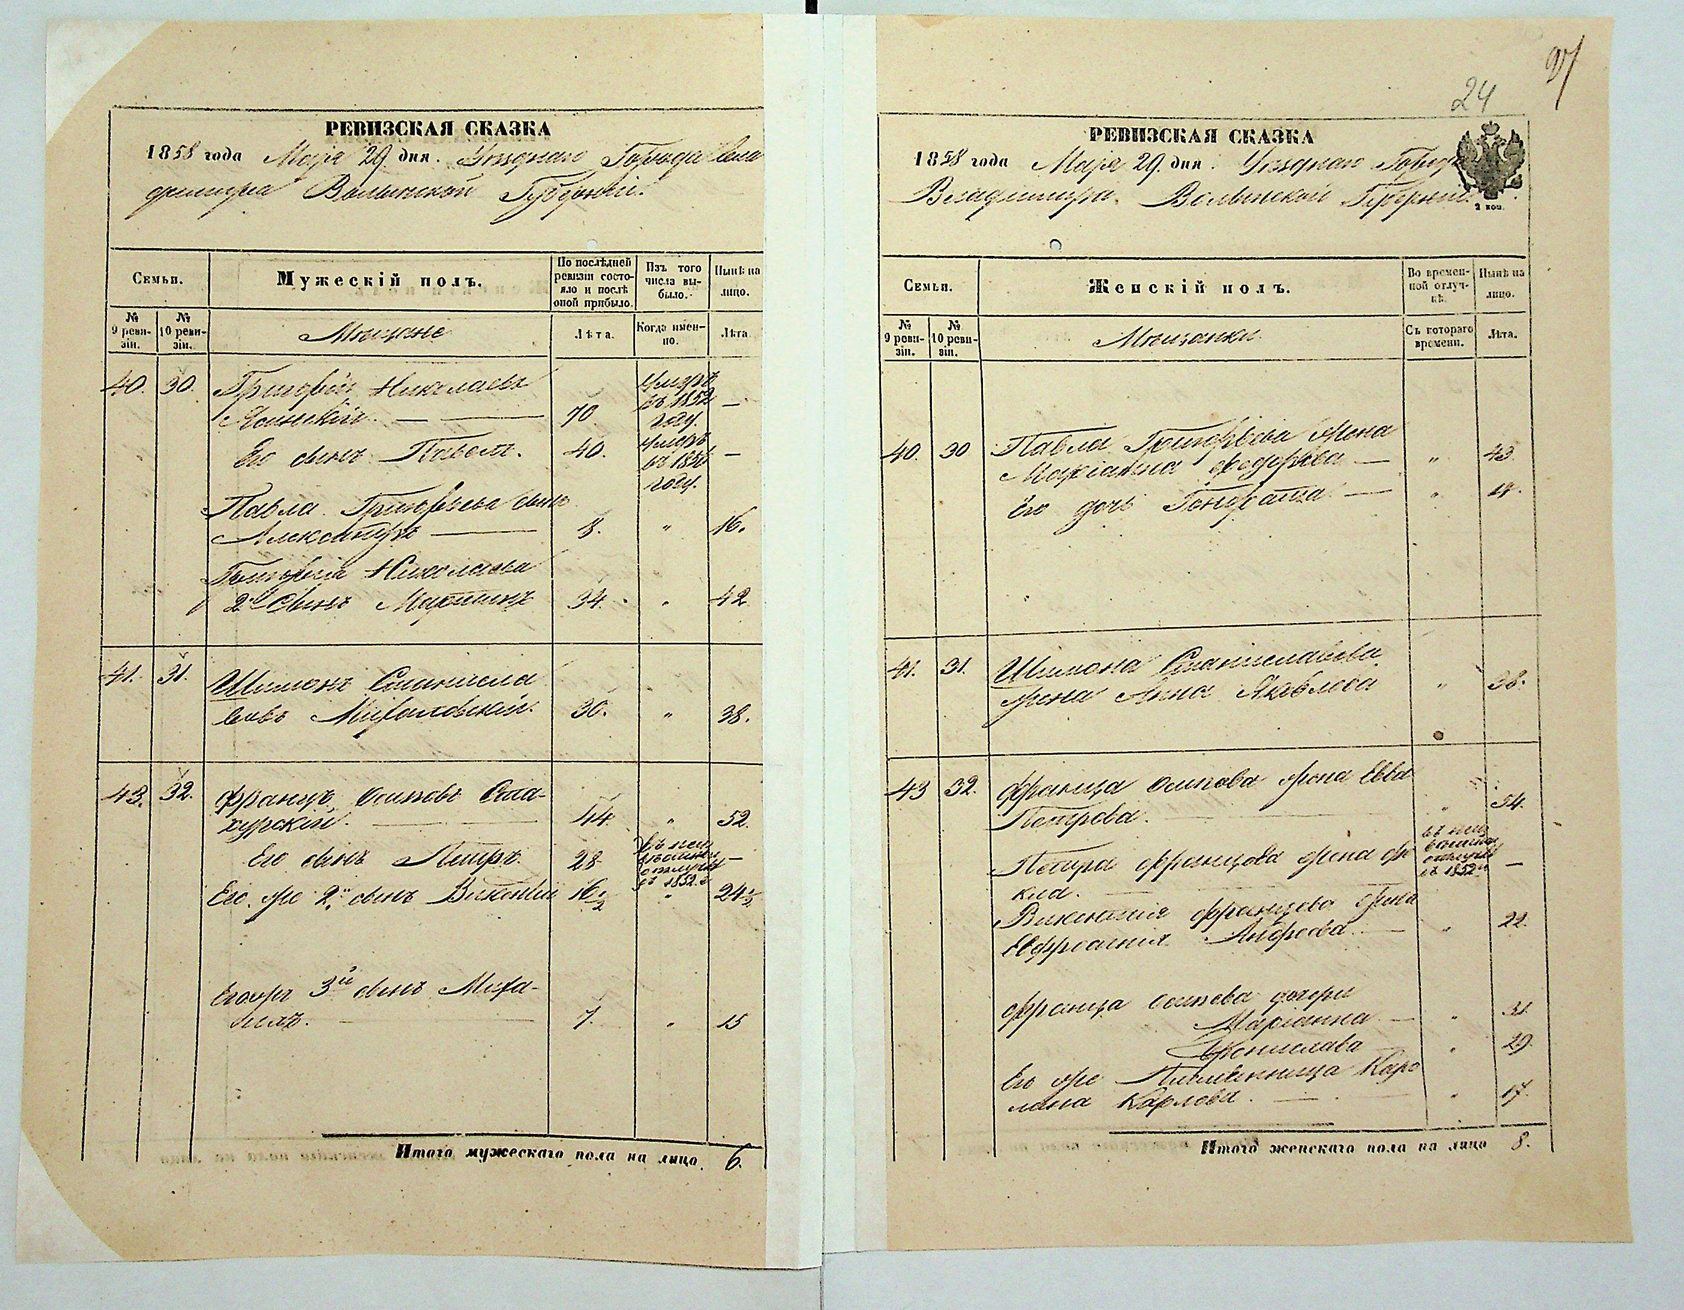 РЕВИЗСКАЯ СКАЗКА
1858 года Маія 29 дня. Уезднаго Города Вла
диміра Волынской Губерніи.
Семьи.
Мужескій полъ.
По послѣдней ревизіи состояло и послѣ оной прибыло.
Изъ того числа выбыло.
Нынѣ на лицо.
№ 9 ревизіи.
№ 10 ревизіи.
Мещане
Лѣта.
Когда именно.
Лѣта
40. 30. Григорій Николаевъ
Ясинскій 70. умеръ въ 1852 году. —
Его сынъ Павелъ. 40. умеръ въ 185 году. —
Павла Григорьева сынъ
Александръ 8. " 16.
Григорія Николаева
2й сынъ Мартинъ 34. " 42
41. 31. Шимонъ Станисла
вовъ Михаловскій. 30. " 38.
43. 32. Францъ Осиповъ Ста-
хурскій. 44. " 52.
Его сынъ Петръ. 28. отлучкѣ съ 1852 г —
Его же 2й сынъ Викентій 16 1/2 " 24 1/2
Его же 3й сынъ Миха-
илъ. 7. " 15
Итого мужескаго пола на лицо. 6.
97
24
РЕВИЗСКАЯ СКАЗКА
1858 года Маія 29 дня. Уезднаго Города
Владиміра Волынской Губерніи.
2 коп.
Семьи.
Женскій полъ.
Во временной отлучкѣ.
Нынѣ на лицо.
№ 9 ревизіи.
№ 10 ревизіи.
Мещанки
Съ котораго времени.
Лѣта.
40. 30 Павла Григорьева жена
Маріанна Федорова — " 43.
Его дочь — " 14.
41. 31. Шимона Станиславова
жена Анна Яковлева " 38.
43 32. Франца Осипова жена Евва
Петрова. " 54.
Петра Францова жена Фе
кла. отлучкѣ съ 1852 г —
Викентія Францова жена
Евфросинія Андреева — " 22.
Франца Осипова дочери
Маріанна — " 31
Брониславa — " 29.
Его же Племянница Каро
лина Карлова. — " 17.
Итого женскаго пола на лицо 8.